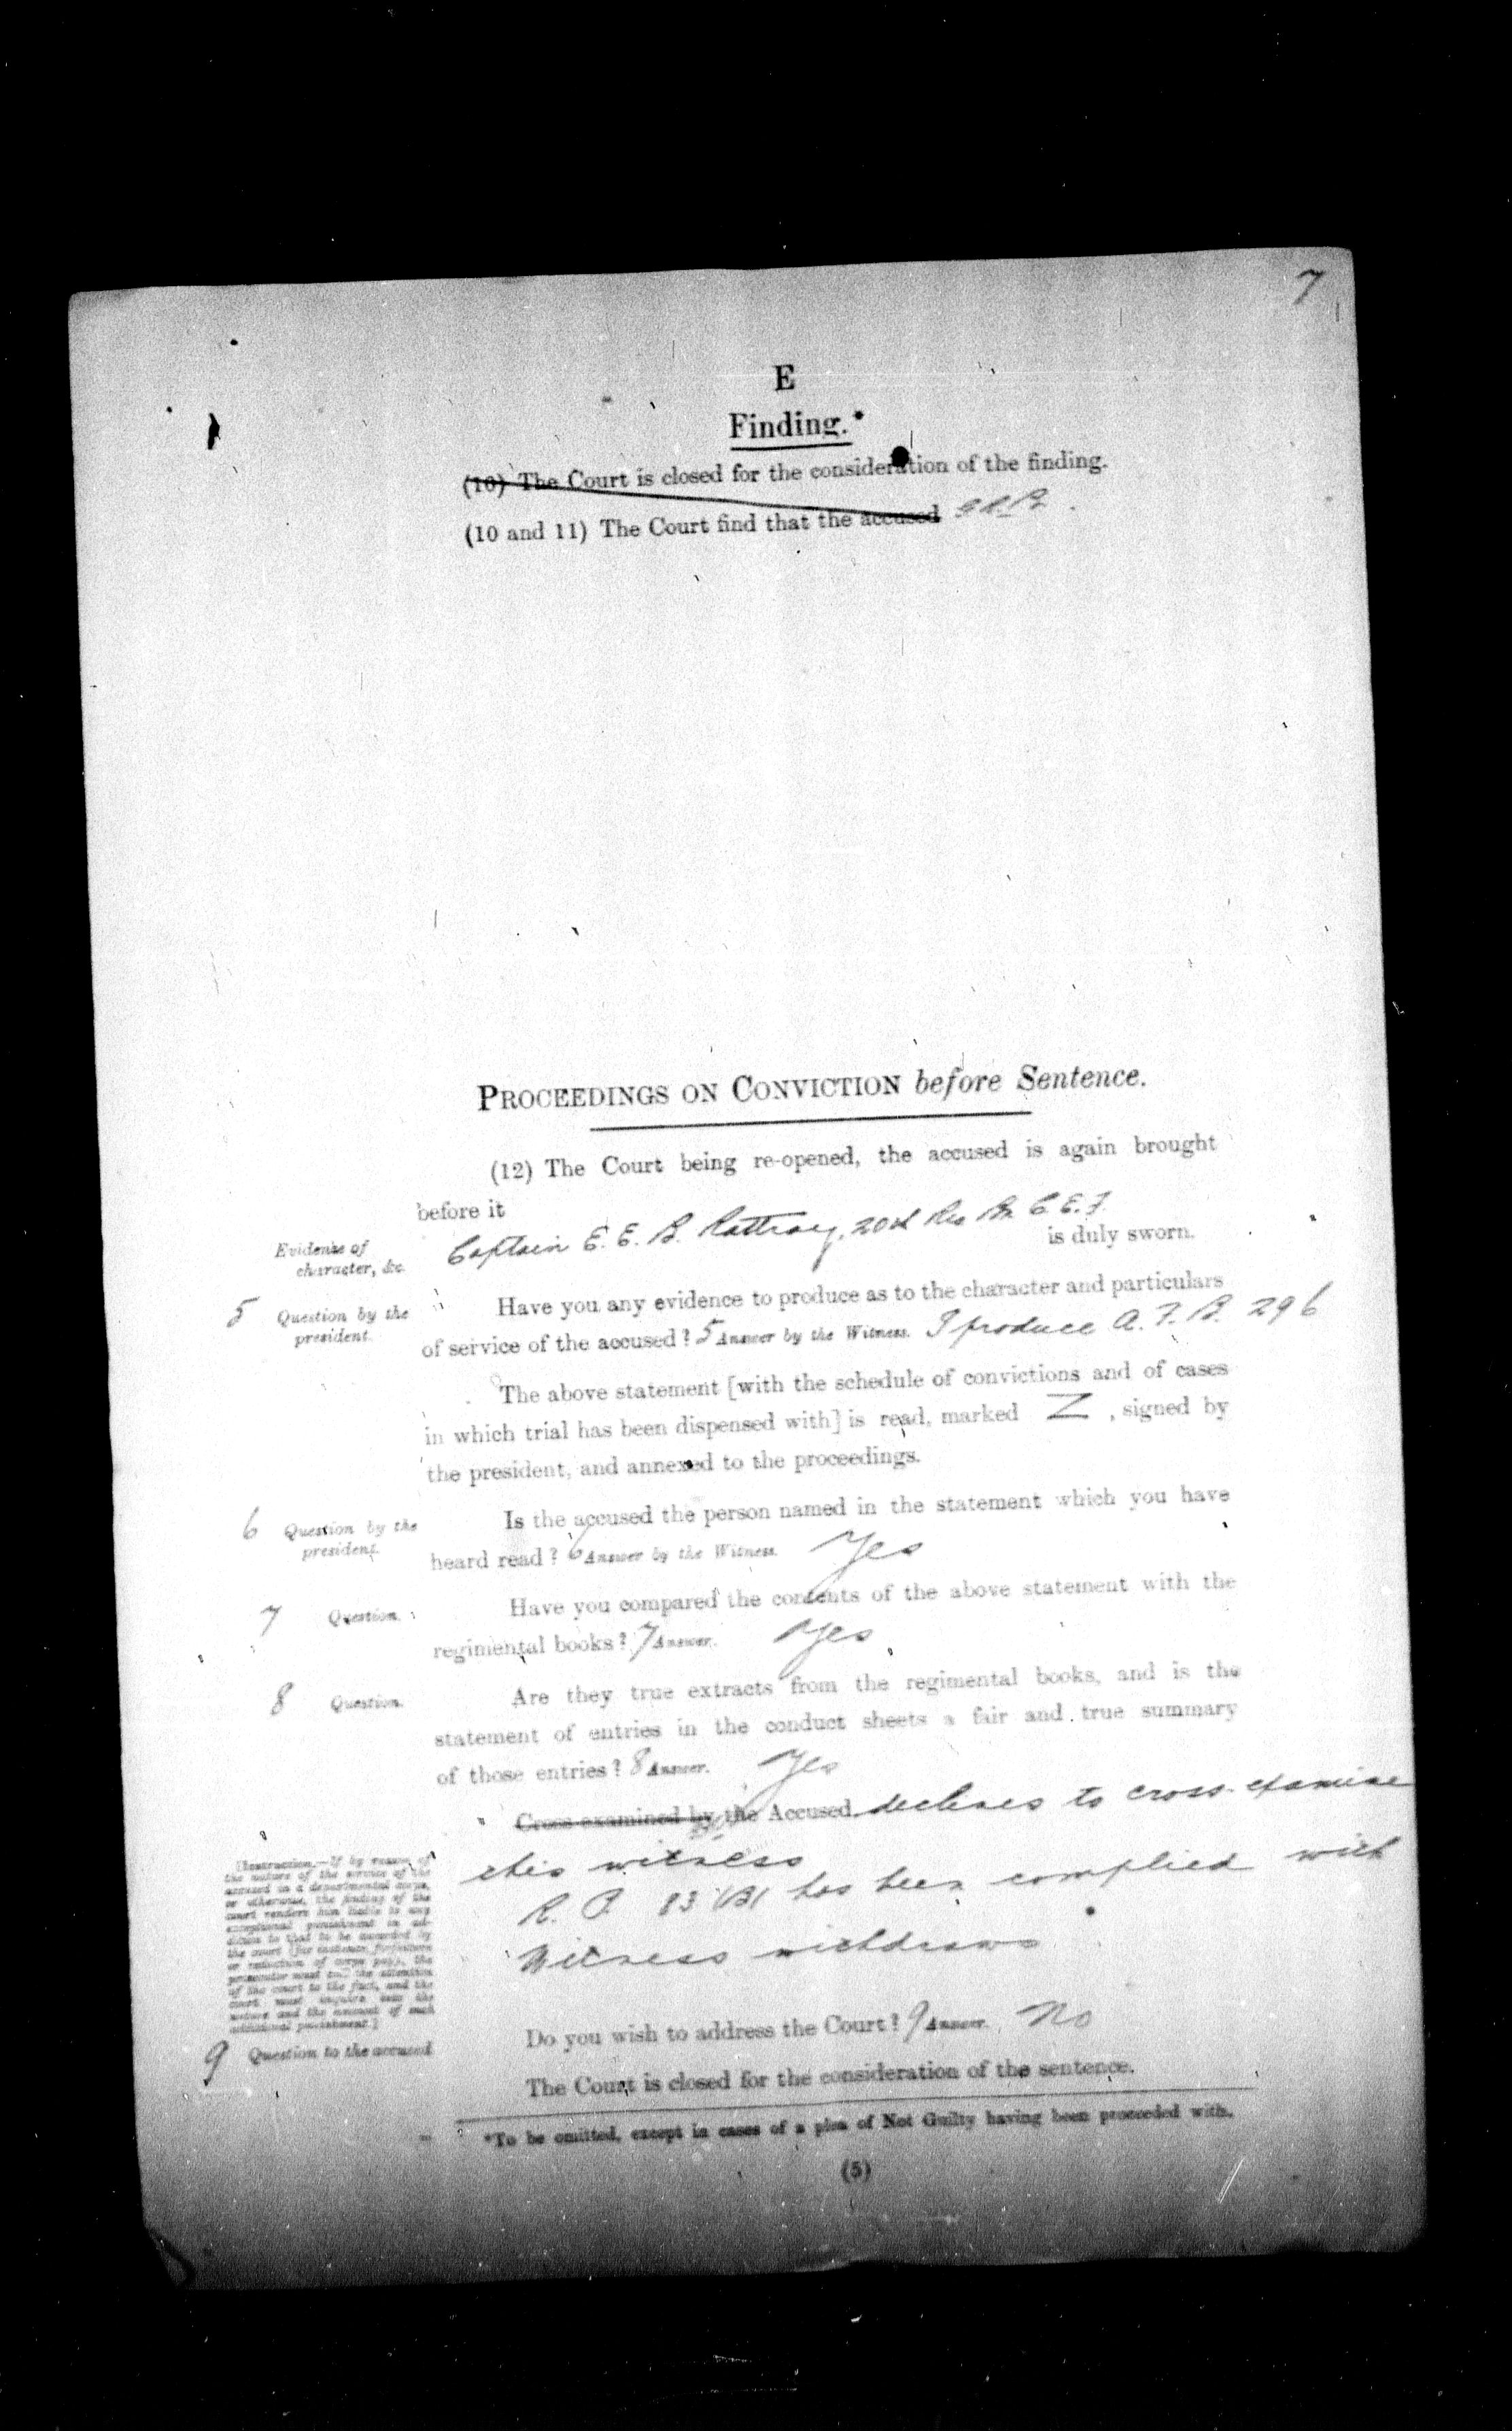 7
E
Finding.*
(10) The Court is closed for the consideration of the finding.
(10 and 11) The Court find that the accused
PROCEEDINGS ON CONVICTION before Sentence.
(12) The Court being re-opened, the accused is again brought
before it
Evidence of
character, &c.
Captain E. E. B. Rattray, 20th Res Bn C. E. F.
is duly sworn.
5 Question by the
president.
Have you any evidence to produce as to the character and particulars
of service of the accused? 5 Answer by the Witness. I produce A. F. B. 296
The above statement [with the schedule of convictions and of cases
in which trial has been dispensed with] is read, marked Z , signed by
the president, and annexed to the proceedings.
6 Question by the
president.
Is the accused the person named in the statement which you have
heard read? 6 Answer by the Witness. Yes
7 Question.
Have you compared the contents of the above statement with the
regimental books? 7 Answer. Yes
8 Question.
Are they true extracts from the regimental books, and is the
statement of entries in the conduct sheets a fair and true summary
of those entries? 8 Answer. Yes
Cross-examined by the Accused. declines to cross-examine
this witness
R. P. 83 (B) has been complied with
Witness withdraws
[Instruction.—If by reason of
the nature of the service of the
accused in a departmental corps,
or otherwise, the finding of the
court renders him liable to any
exceptional punishment in ad-
dition to that to be awarded by
the court (for instance, forfeiture
or reduction of corps pay), the
prosecutor must call the attention
of the court to the fact, and the
court must inquire into the
nature and the amount of such
additional punishment.]
9 Question to the accused.
Do you wish to address the Court? 9 Answer. No
The Court is closed for the consideration of the sentence.
*To be omitted, except in cases of a plea of Not Guilty having been proceeded with.
(5)